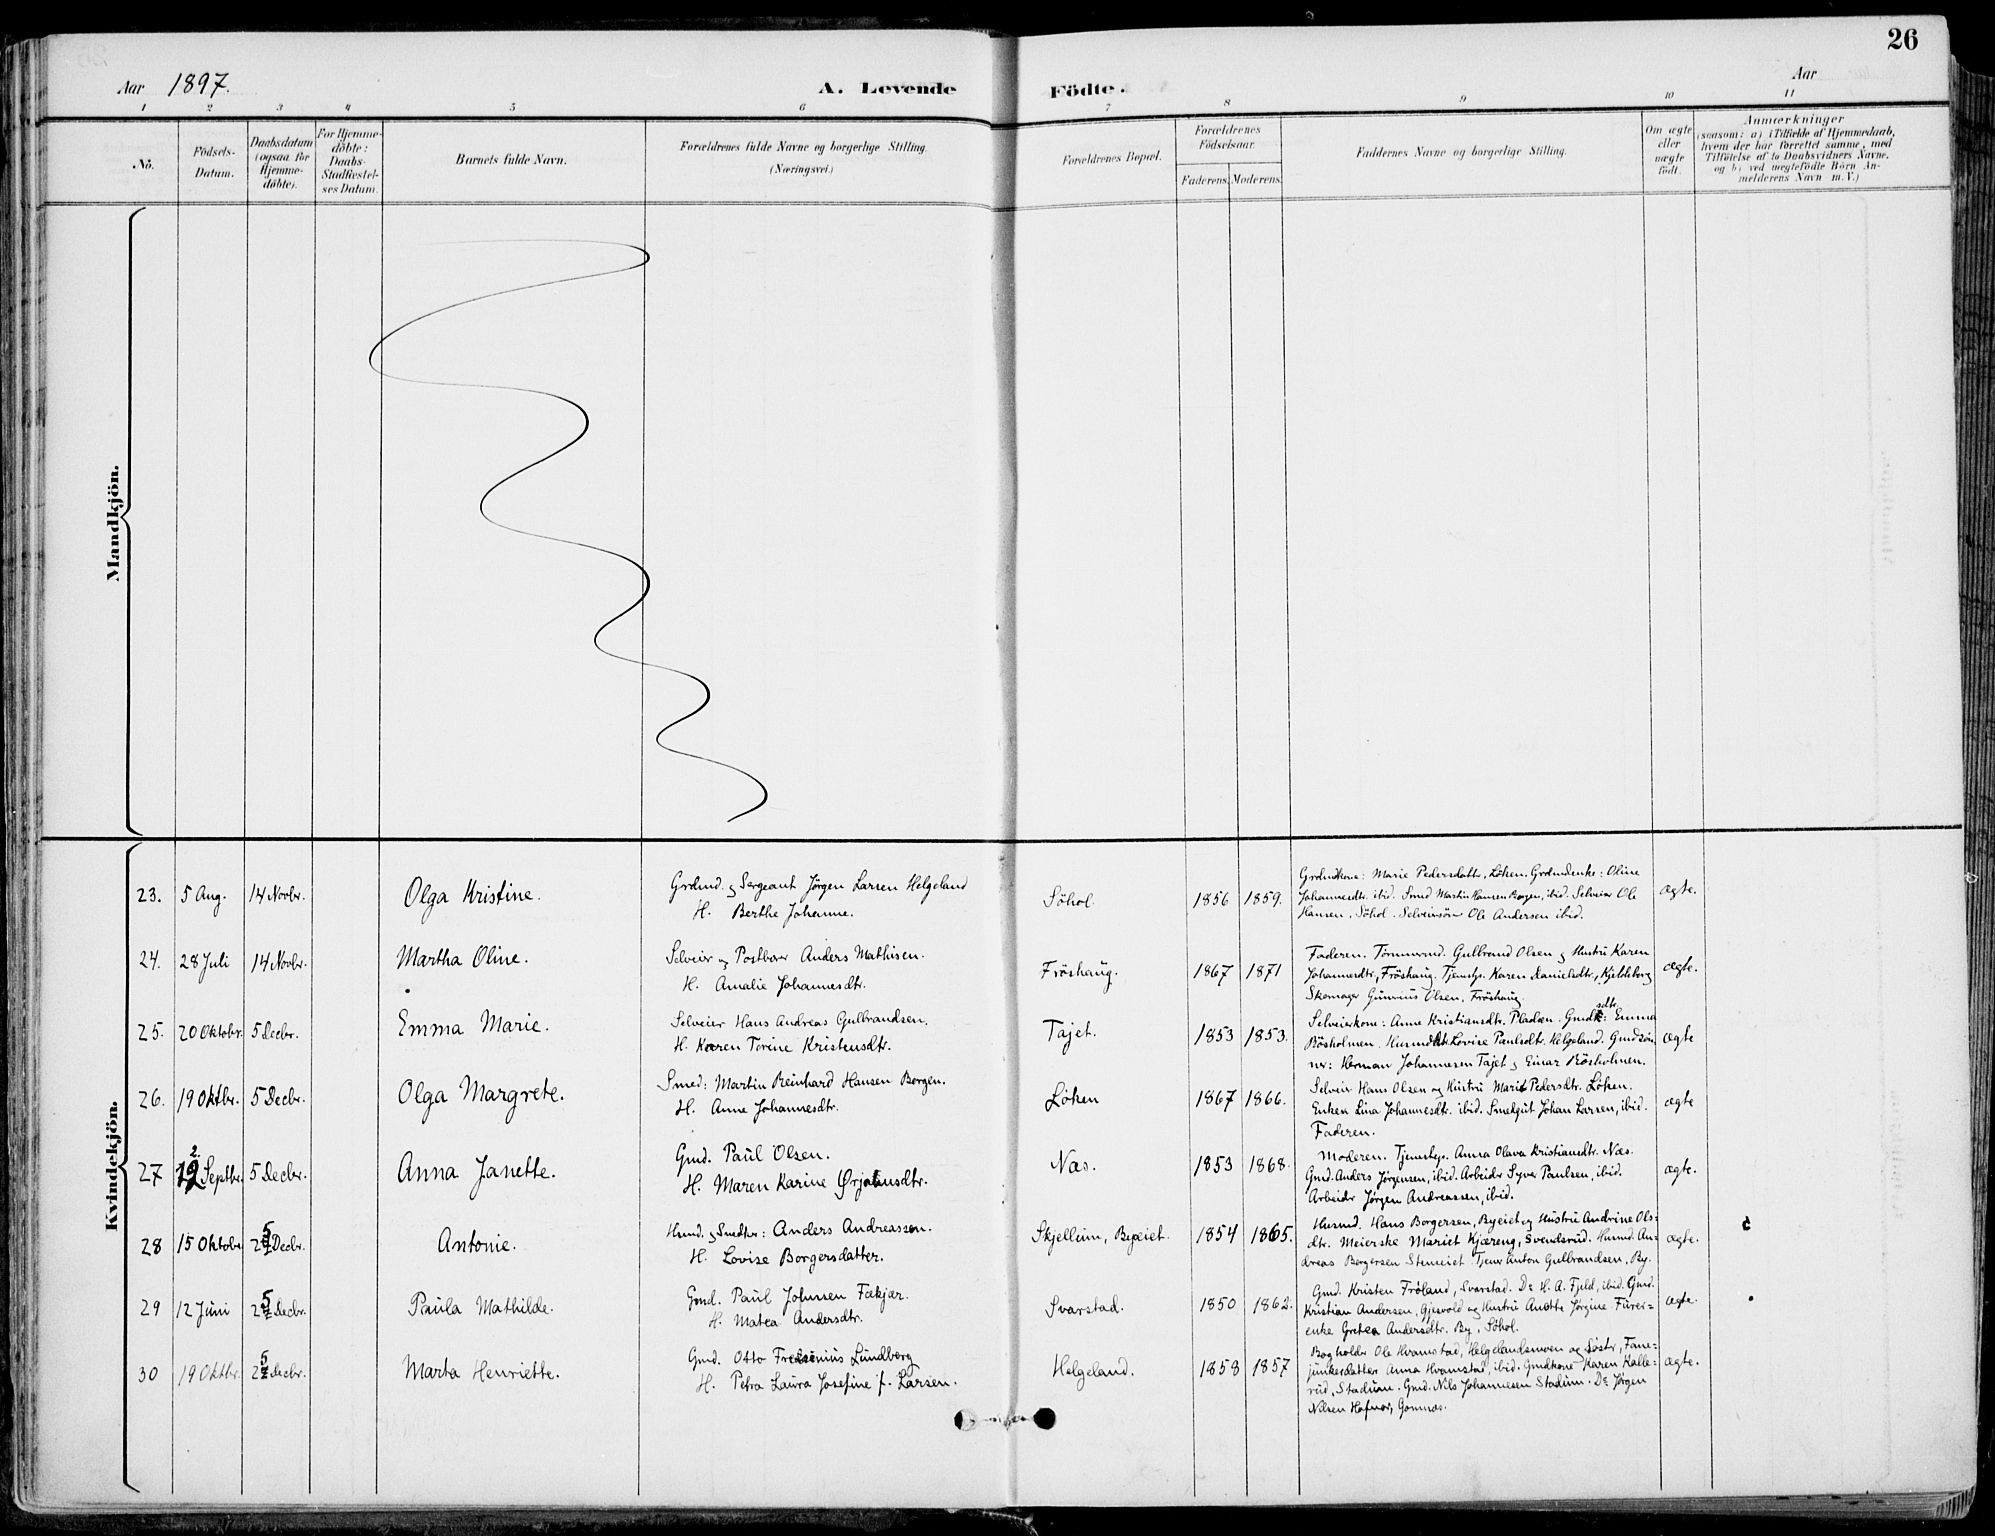 26
Aar 1897.
A. Levende Födte.
Aar
1 2 3 4 5 6 7 8 9 10 11
No.
Födsels-
Datum.
Daabsdatum
(ogsaa for
Hjemme-
döbte).
For Hjemme-
döbte:
Daabs-
Stadfæstel-
ses Datum.
Barnets fulde Navn.
Forældrenes fulde Navne og borgerlige Stilling.
(Næringsvei.)
Forældrenes Bopæl.
Forældrenes
Födselsaar.
Faderens. Moderens.
Faddernes Navne og borgerlige Stilling.
Om ægte
eller
uægte
födt.
Anmærkninger
(saasom: a) i Tilfælde af Hjemmedaab,
hvem der har forrettet samme, med
Tilföielse af to Daabsvidners Navne,
og b) ved uægtefödte Börn An-
melderens Navn m. V.)
Mandkjön.
Kvindekjön.
23. 5 Aug. 14 Novbr. Olga Kristine.
Grdmd. og Sergeant Jörgen Larsen Helgeland
H. Berthe Johanne.
Söhol. 1856 1859.
Grdmdkone: Marie Pedersdatt., Löken. Grdmdenke: Oline
Johannesdtr. ibid. Smed Martin Hansen Borgen, ibid. Selveier Ole
Hansen, Söhol. Selveiersön Ole Andersen ibid.
ægte.
24. 28 Juli 14 Novbr. Martha Oline.
Selveier og Postbærer Anders Mathisen.
H. Amalie Johannesdtr.
Fröshaug. 1867 1871
Faderen. Tömmermd. Gulbrand Olsen og Hustru Karen
Johannesdtr., Fröshaug. Tjenestep. Karen Danielsdtr., Kjeldsberg
Skomager Gunerius Olsen, Fröshaug.
ægte.
25. 20 Oktobr. 5 Decbr. Emma Marie.
Selveier Hans Andreas Gulbrandsen.
H. Karen Torine Kristensdtr.
Tajet. 1853 1853.
Selveierkone: Anne Kristiansdtr. Pladsen. Gmdsdtr.: Emma
Rösholmen. Husmdsdtr. Lovise Paulsdtr. Helgeland. Gmdsön-
ner: Herman Johannesen Tajet og Einar Rösholmen.
ægte
26. 19 Oktbr. 5 Decbr. Olga Margrete.
Smed: Martin Reinhard Hansen Borgen.
H. Anne Johannesdtr.
Löken 1867 1866.
Selveier Hans Olsen og Hustru Marit Pedersdtr. Löken.
Enken Lina Johannesdtr. ibid. Smedgut Johan Larsen, ibid.
Faderen.
ægte
27 12 Septbr. 5 Decbr. Anna Janette.
Gmd. Paul Olsen.
H. Maren Karine Ørjansdtr.
Næs. 1853 1868.
Moderen. Tjenestep. Anna Olava Kristiansdtr. Næs.
Gmd. Anders Jörgensen, ibid. Arbeider Syver Paulsen, ibid.
Arbeider Jörgen Andreassen, ibid.
ægte.
28 15 Oktobr 25 Decbr. Antonie.
Husmd. og Snedker: Anders Andreassen.
H. Lovise Borgersdatter.
Skjellum, Byeiet. 1854 1865.
Husmd. Hans Borgersen, Byeiet og Hustru Andrine Ols-
dtr. Meierske Mariet Kjæreng, Svendsrud. Husmd. An-
dreas Borgersen Steneiet. Tjener Anton Gulbrandsen, By.
ægte.
29 12 Juni 25 Decbr. Paula Mathilde.
Gmd. Paul Johnsen Fækjær.
H. Matea Andersdtr.
Svarstad. 1850 1862.
Gmd. Kristen Fröland, Svarstad. Do H. A. Fjeld, ibid. Gmd.
Kristian Andersen, Gjesvold og Hustru Anette Jörgine. Furer-
enke Gretea Andersdtr. By, Söhol.
ægte.
30 19 Oktbr. 25 Decbr. Marta Henriette.
Gmd. Otto Lundberg
H. Petra Laura Josefine f. Larsen.
Helgeland. 1858 1857
Bogholder Ole Hvamstad, Helgelandsmoen og Söster, Fane-
junkersdatter Anna Hvamstad, ibid. Gmdkone Karen Kalle-
rud, Stadum. Gmd. Nils Johannesen Stadum. Do Jörgen
Nilsen Hafnor, Gomnæs.
ægte.